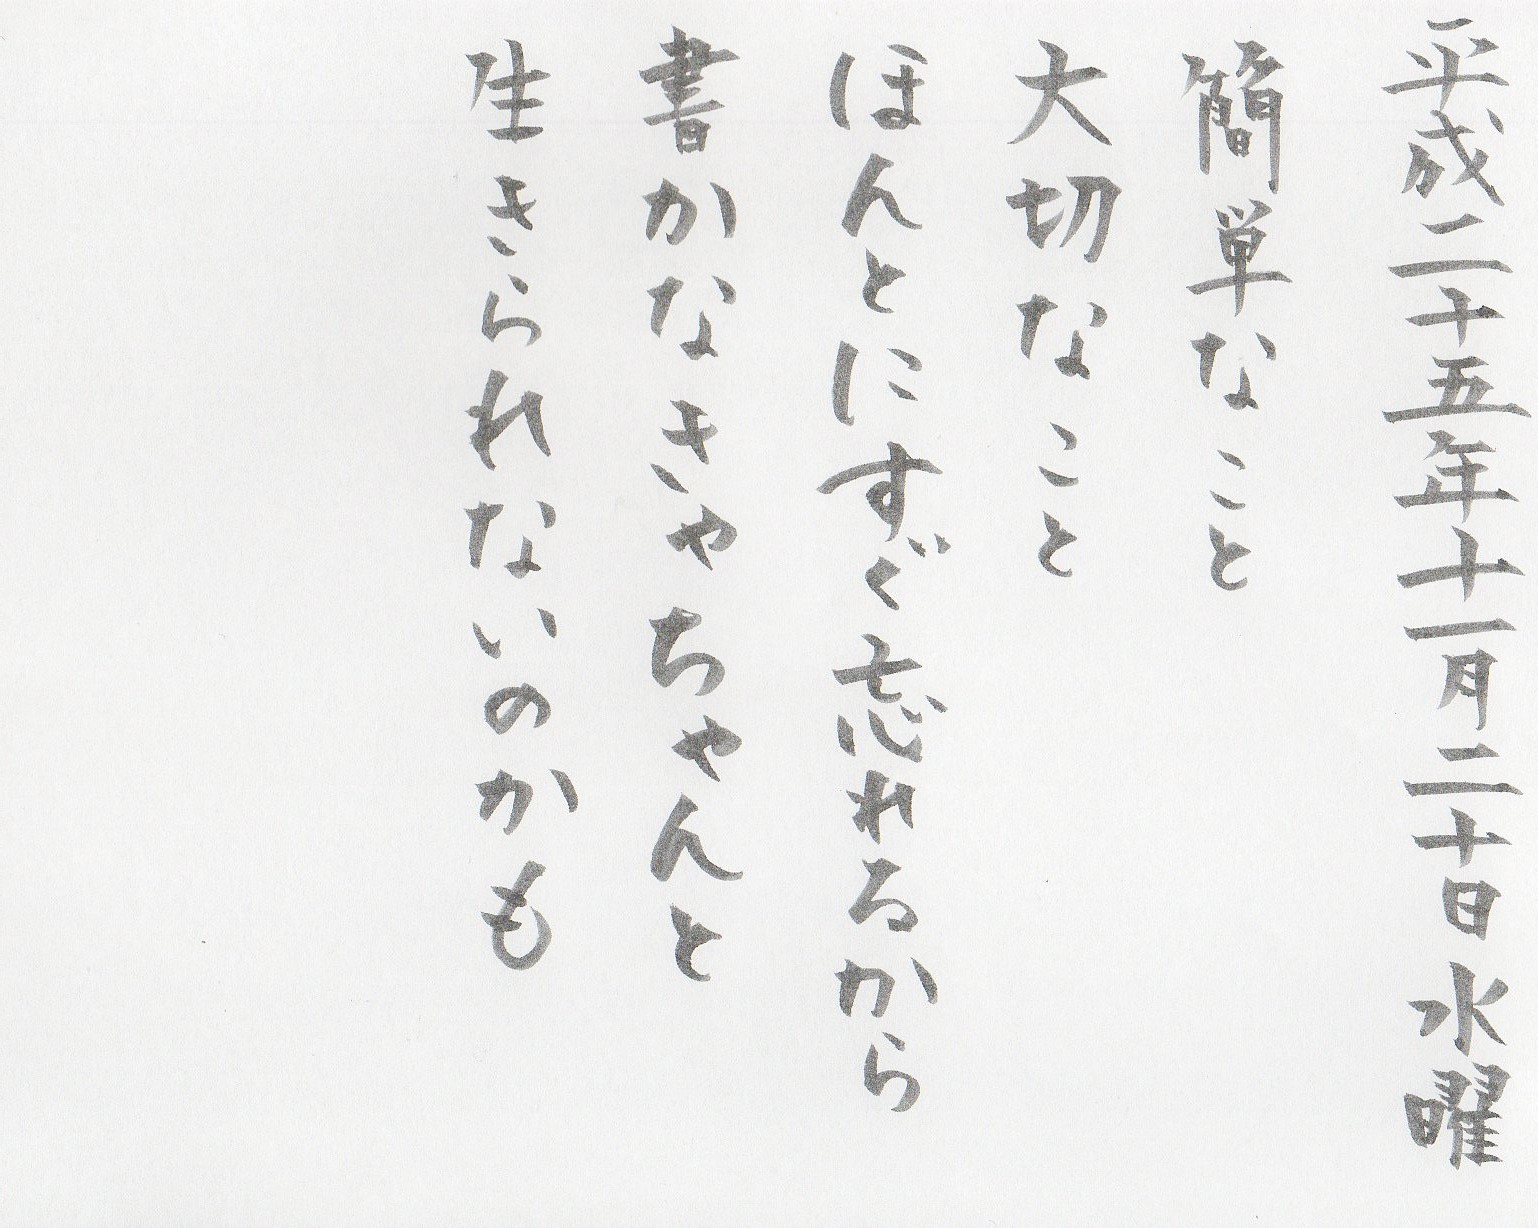 平成二十五年十一月二十日水曜
簡単なこと
大切なこと
ほんとにすぐ忘れるから
書かなきゃちゃんと
生きられないのかも